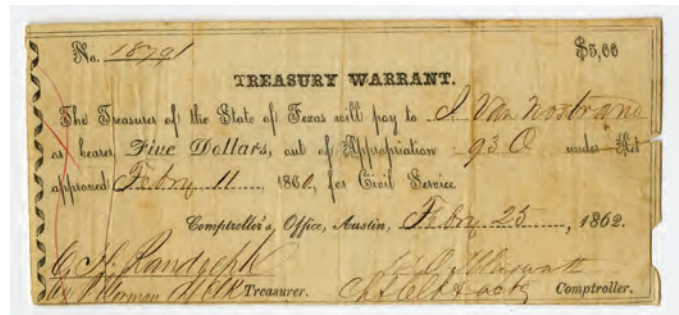 No. 18791 $5,00
TREASURY WARRANT.
The Treasurer of the State of Texas will pay to J. Van Nostrand
or bearer Five Dollars, out of Appropriation 93.0 under Act
approved Febry 11 1860, for Civil Service
Comptroller's Office, Austin, Febry 25, 1862.
C. H. Randolph
Clk Treasurer. Comptroller.